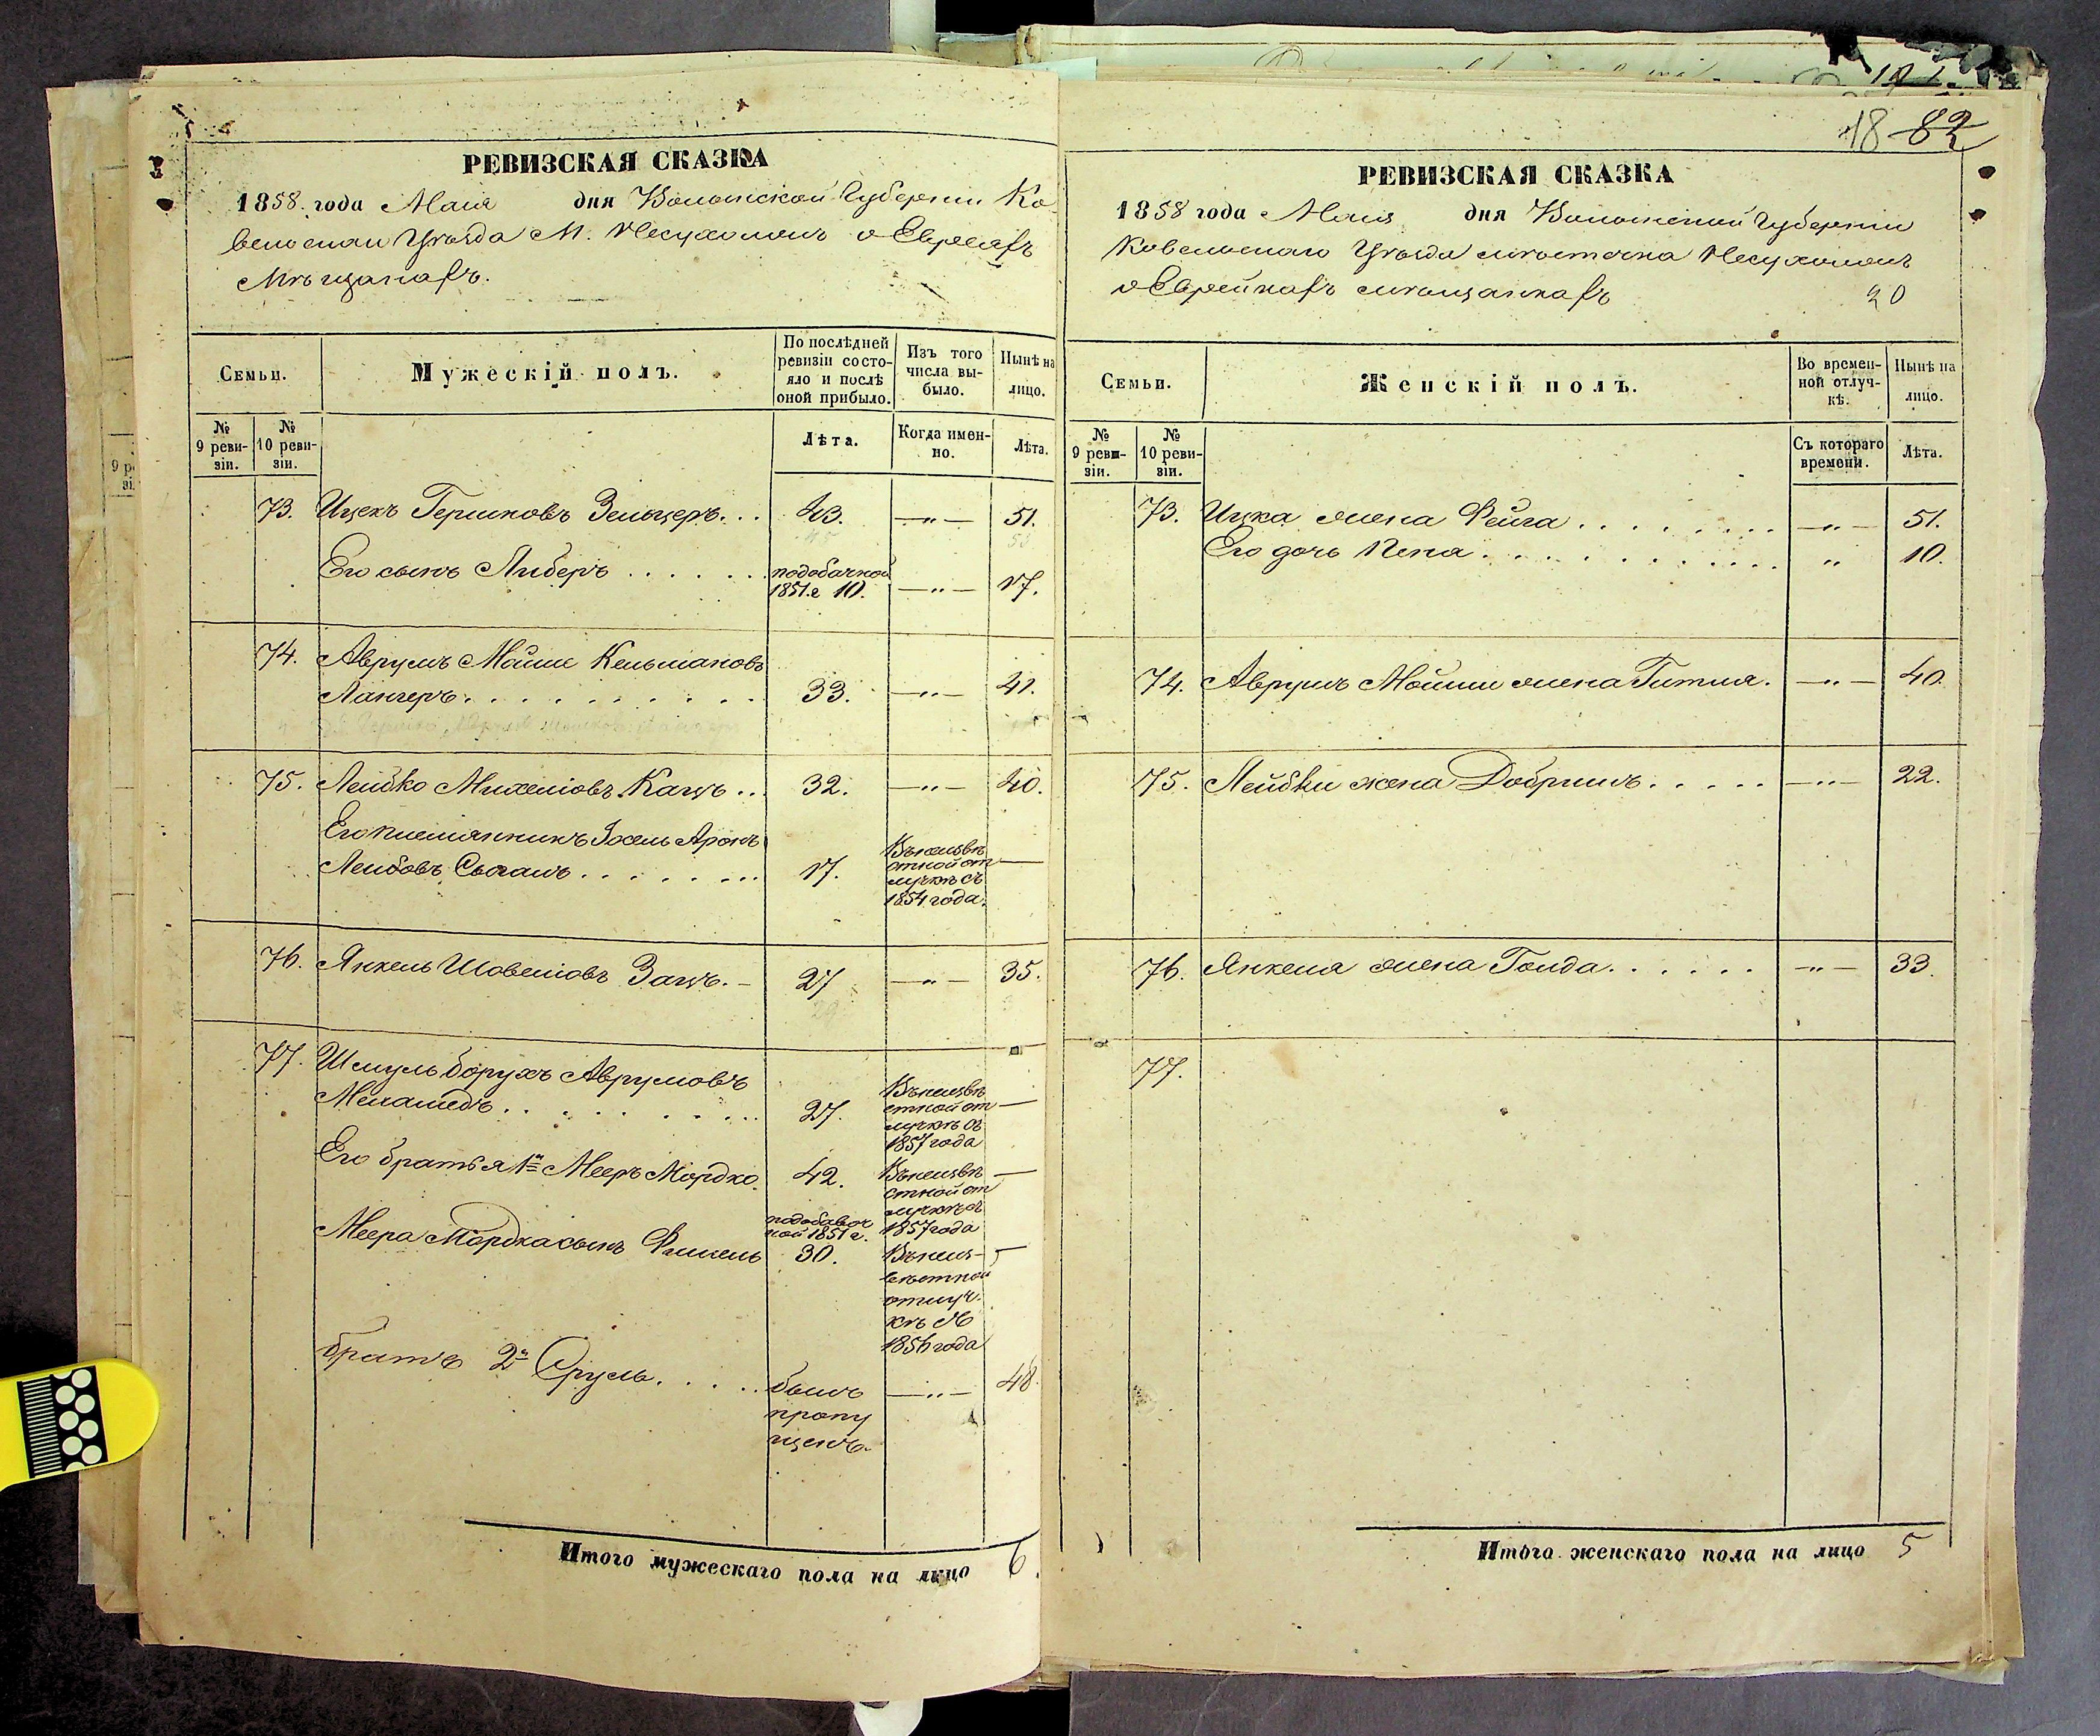 РЕВИЗСКАЯ СКАЗКА
1858. года Мая дня Волынской Губерніи Ко
вельскаго Уѣзда М. Несухоежъ о Евреяхъ
Мѣщанахъ.
Семьи.
Мужескій полъ.
По послѣдней
ревизіи состо-
яло и послѣ
оной прибыло.
Изъ того
числа вы-
было.
Нынѣ на
лицо.
№
9 реви-
зіи.
№
10 реви-
зіи.
Лѣта.
Когда имен-
но.
Лѣта.
73. Ицекъ Гершковъ Зельцеръ... 43. —"— 51.
Его сынъ Либеръ ...... подобачной
1851.г 10. —"— 17.
74. Аврумъ Мойше Кельмановъ
Лангеръ. 33. —"— 41.
75. Лейбко Михелiовъ Кацъ... 32. —"— 40.
Его племянникъ Іосель Аронъ
Лейбовъ 17. Въ неизвѣ
стной от
лучкѣ съ
1854 года.
76. Янкель Шовелiовъ Зацъ. 27 —"— 35.
77. Шмуль Борухъ Аврумовъ
Меламедъ. 27. Въ неизвѣ
стной от
лучкѣ съ
1857 года
Его братья 1й Мееръ Мордко. 42. Въ неизвѣ
стной от
лучкѣ съ
1857 года
Меера Мордка сынъ Фишель подобавоч
ной 1851 г.
30. Въ неиз-
вѣстной
отлуч-
кѣ съ
1856 года
братъ 2й Сруль..... былъ
пропу
щенъ. —"— 48.
Итого мужескаго пола на лицо 6.
18 82
РЕВИЗСКАЯ СКАЗКА
1858 года Мая дня Волынской Губерніи
Ковельскаго Уѣзда мѣстечка Несухоежъ
о Еврейкахъ мѣщанкахъ
20
Семьи.
Женскій полъ.
Во времен-
ной отлуч-
кѣ.
Нынѣ на
лицо.
№
9 реви-
зіи.
№
10 реви-
зіи.
Съ котораго
времени.
Лѣта.
73. Ицка жена Фейга ........ —"— 51.
Его дочь Пена ............ " 10.
74. Аврумъ Мойши жена Гитля. —"— 40.
75. Лейбки жена Добришъ..... —"— 22.
76. Янкеля жена Голда...... —"— 33.
77.
Итого женскаго пола на лицо 5